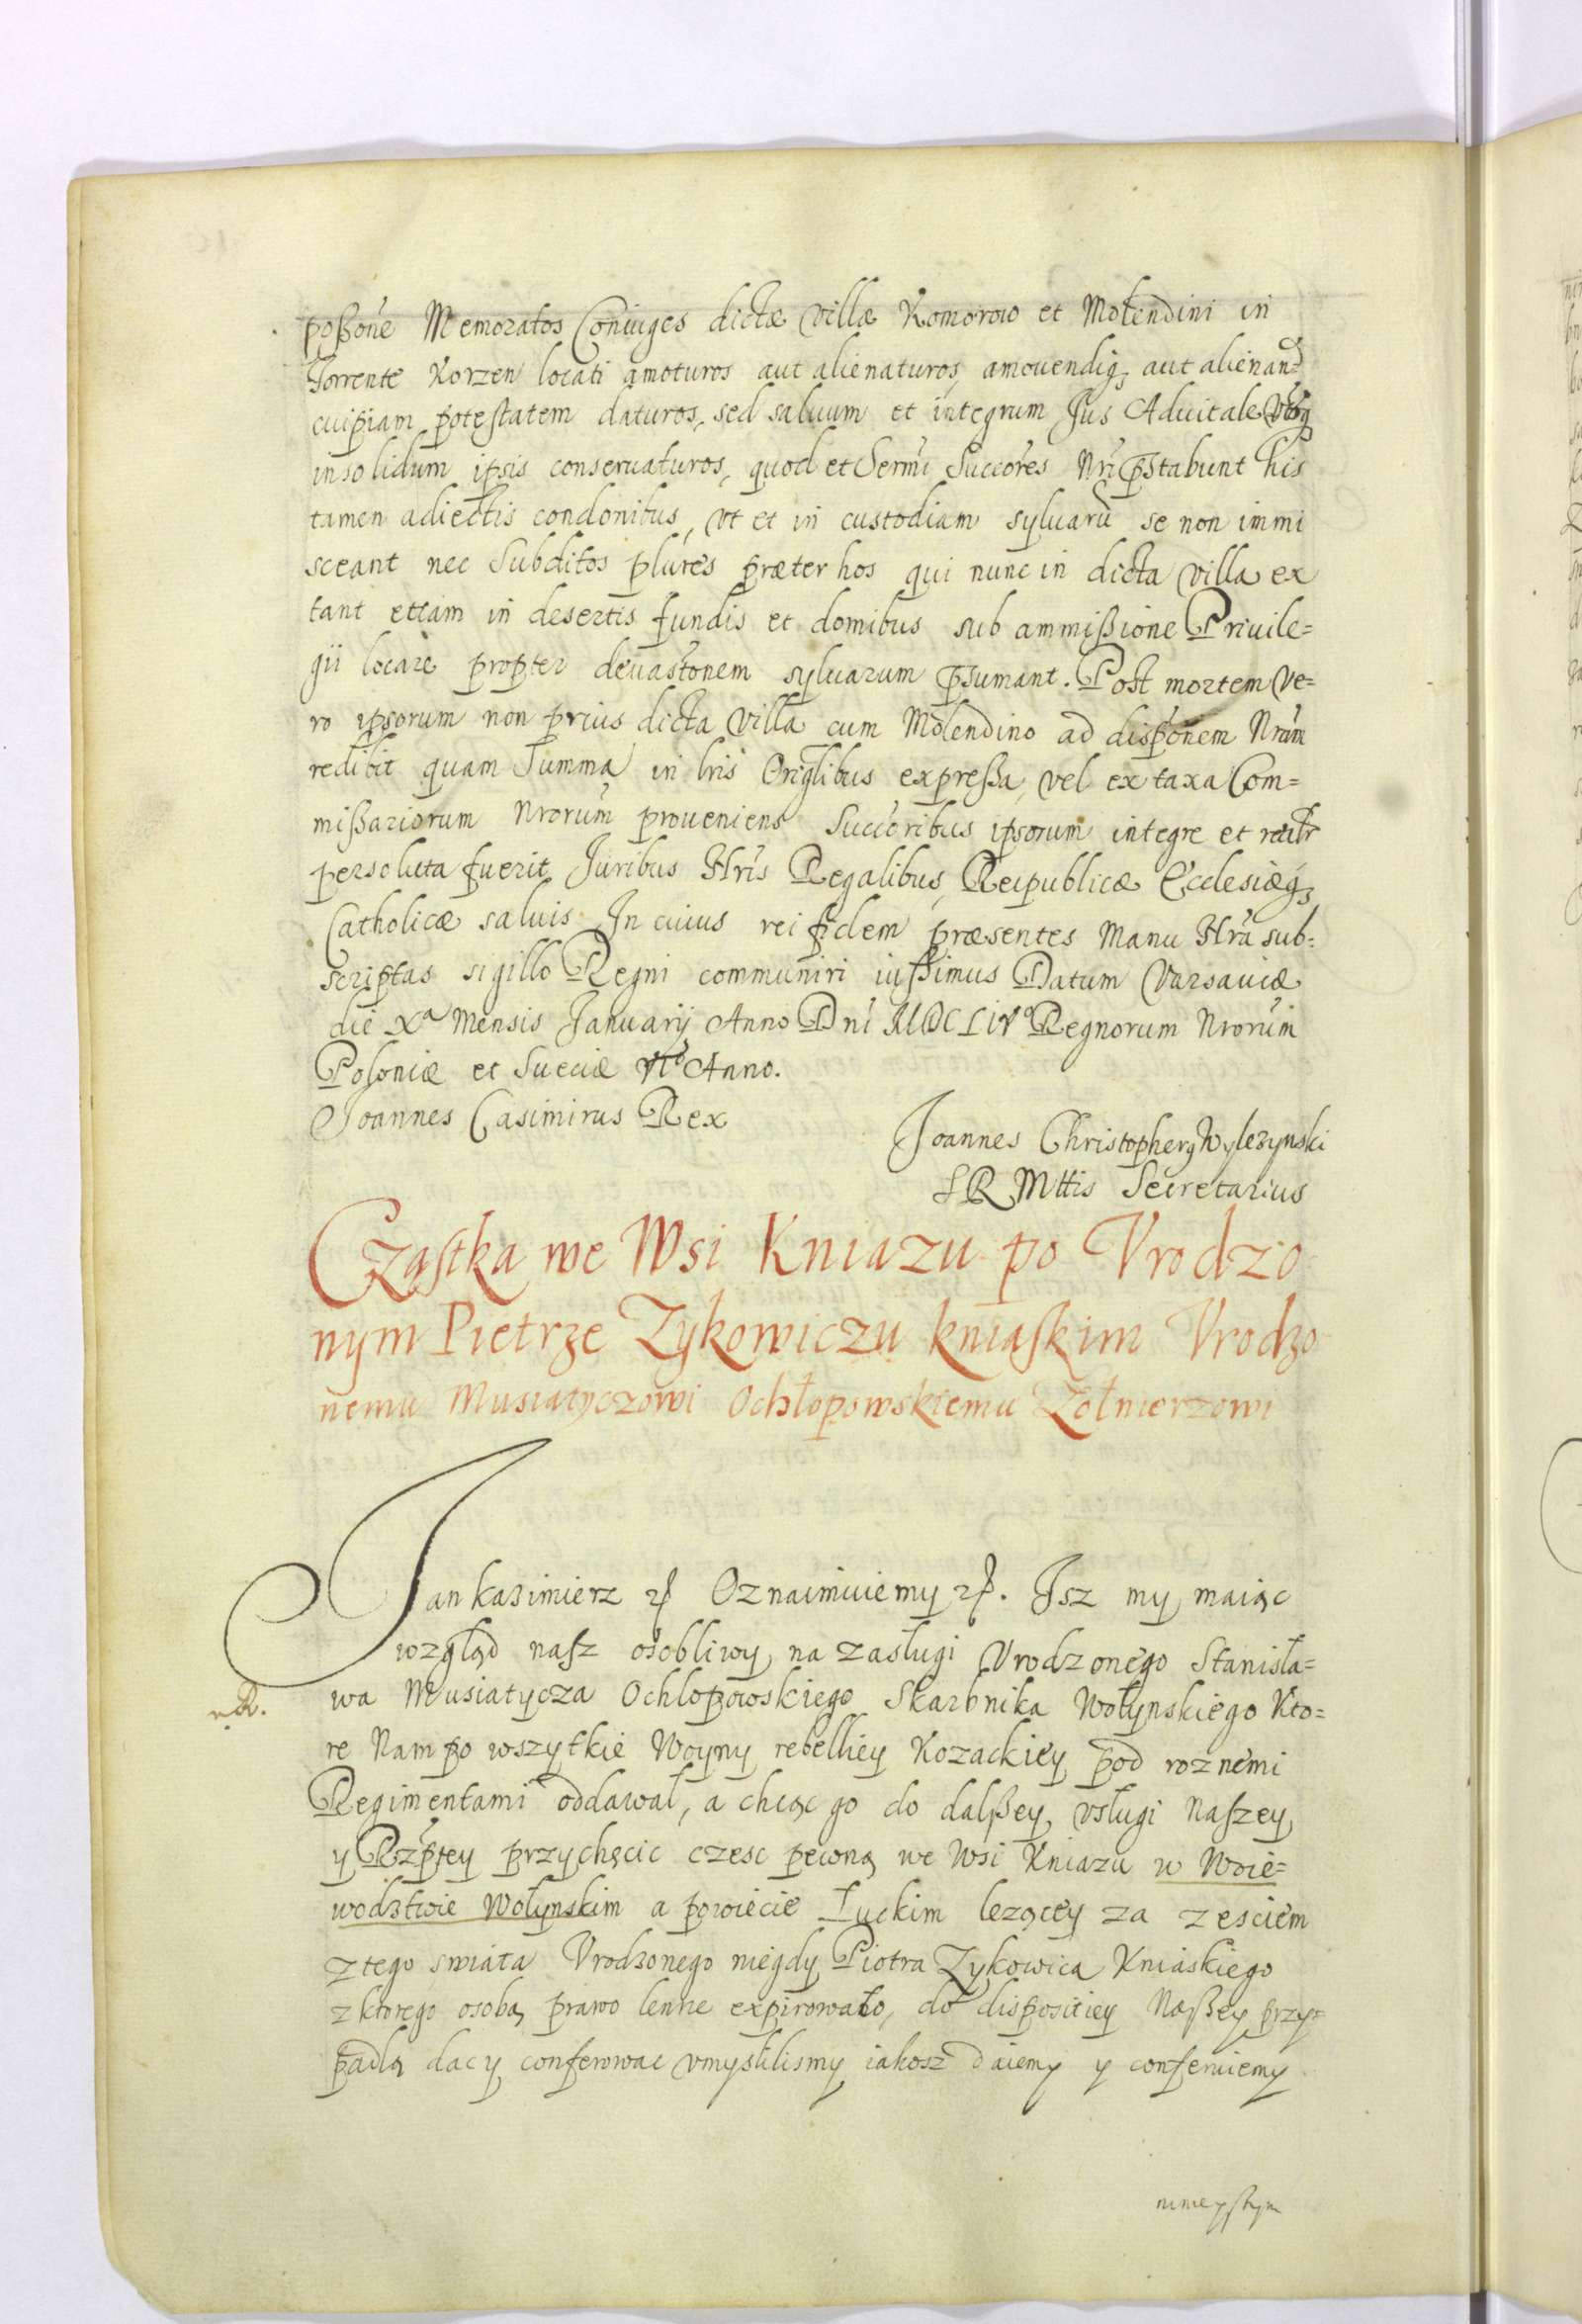 poßone Memoratos Coniuges dictæ villæ Komorow et Molendini in
Torrente Korzen locati amoturos aut alienaturos, amouendiq; aut alienand
cuipiam potestatem daturos, sed saluum et integrum Jus Aduitale
in solidum ipsis conseruaturos, quod et Sermi Succores Nri pstabunt his
tamen adiectis condonibus, vt et in custodiam syluarū se non immi
sceant nec Subditos plures præter hos qui nunc in dicta villa ex
tant etiam in desertis fundis et domibus sub ammißione Priuile=
gii locare propter deuastonem syluarum psumant. Post mortem ve=
ro ipsorum non prius dicta villa cum Molendino ad disponem Nram
redibit quam Summa in lris Origlibus expreßa, vel ex taxa Com=
mißariorum Nrorum proueniens Succoribus ipsorum integre et realr
persoluta fuerit Juribus Nris Regalibus, Reipublicæ Ecclesiæq;
Catholicæ saluis In cuius rei fidem præsentes Manu Nra sub=
scriptas sigillo Regni communiri iußimus Datum Varsauiæ
die Xa Mensis Januarij Anno Dni MDCLIVo Regnorum Nrorum
Poloniæ et Sueciæ VIo Anno.
Joannes Casimirus Rex
Joannes Christopherg Wylezynski
SR Mttis Secretarius
Cząstka we Wsi Kniazu po Vrodzo
nym Pietrze Zykowiczu kniaskim Vrodzo
nemu Musiatyczowi Ochłopowskiemu Zołnierzowi
Jan kazimierz Oznaimuiemy. Isz my maiąc
wzgląd nasz osobliwy na zasługi Vrodzonego Stanisła=
wa Musiatycza Ochlopowskiego Skarbnika Wołynskiego Kto=
re Nam po wszytkie Woyny rebelliey Kozackiey pod roznemi
Regimentami oddawał, a chcąc go do dalßey vsługi Naszey
y Rzptey przychęcic czesc pewną we Wsi Kniazu w Woie=
wodztwie Wołynskim a powiecie Łuckim lezącey za zesciem
z tego swiata Vrodzonego niegdy Piotra Zykowica Kniaskiego
z ktorego osobą prawo lenne expirowało, do dispositiey Naßey przy=
padłą dac y conferowac vmyslilismy iakosz daiemy y conferuiemy